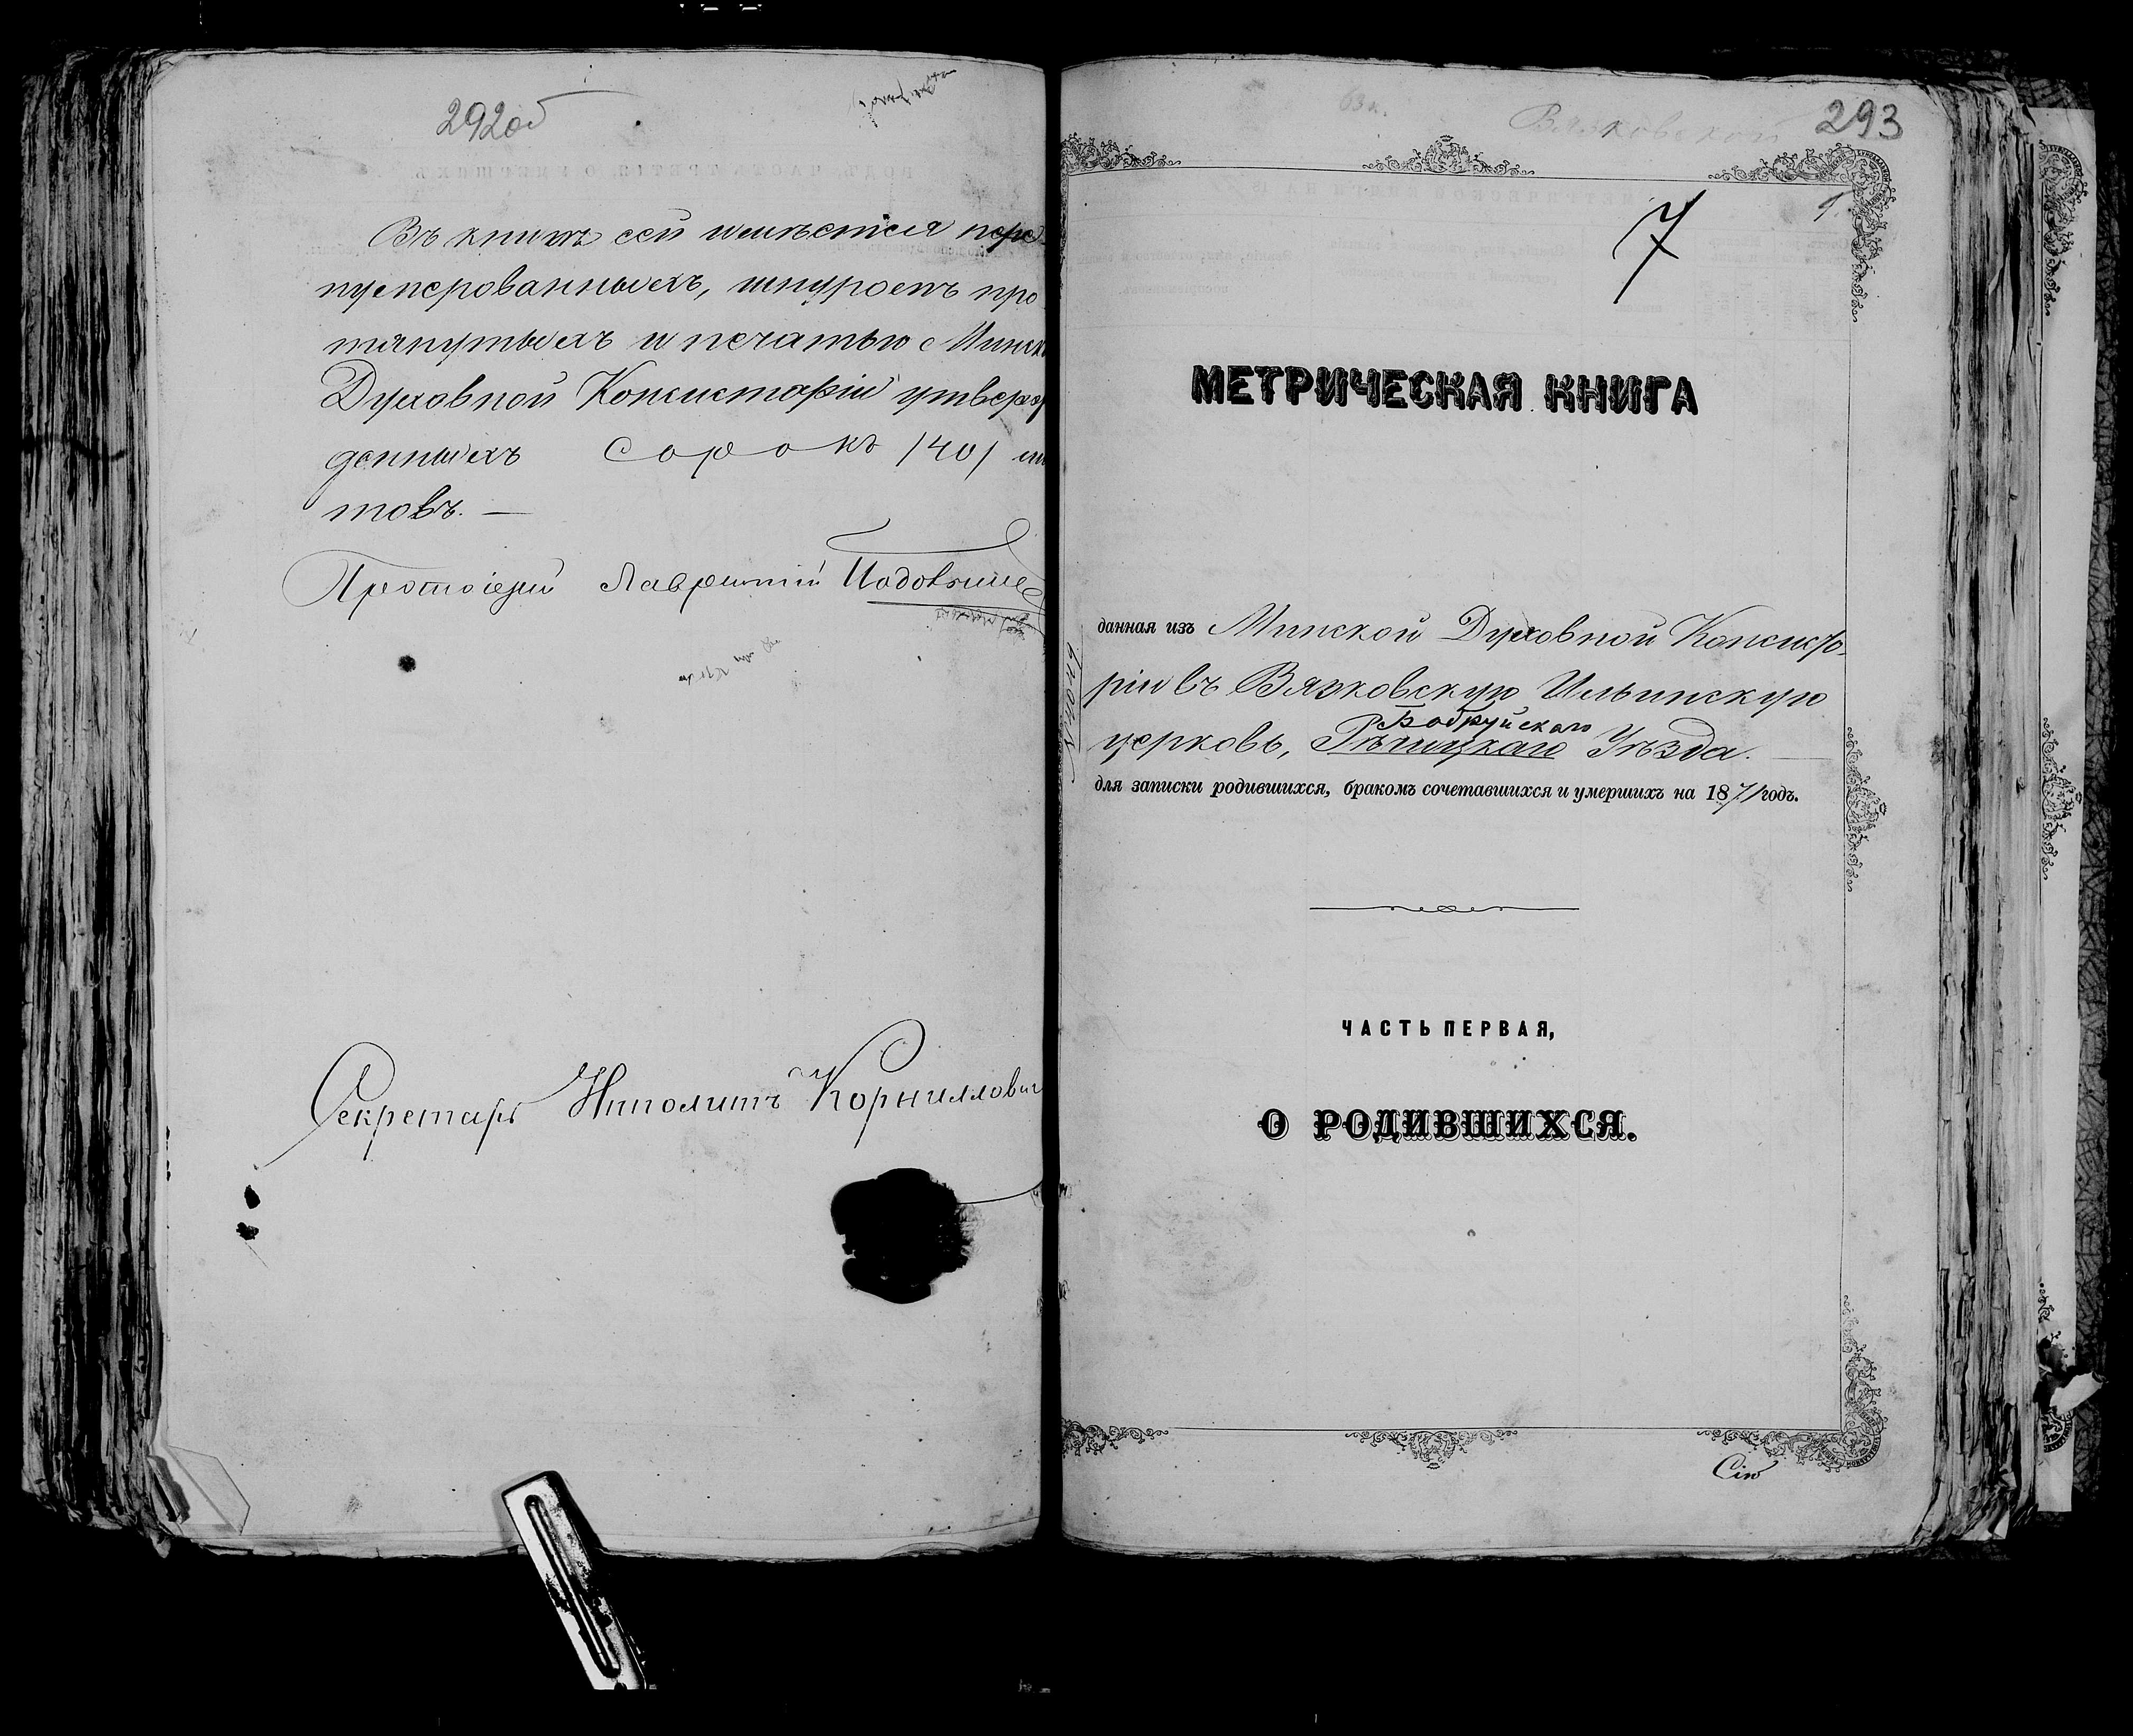 292об
Въ книгѣ сей имѣется пере-
нумерованныхъ, шнуромъ про
тянутыхъ и печатью Минск
Духовной Консисторіи утверж
денныхъ сорокъ /40/ лис
товъ. —
Протоіерей Лаврентій
Секретарь Ипполитъ Корнилович
Вязковской 293
7 1.
МЕТРИЧЕСКАЯ КНИГА
данная изъ Минской Духовной Консисто-
ріи въ Вязковскую Ильинскую
Бобруйскаго
церковь, Рѣчицкаго Уѣзда.
для записки родившихся, бракомъ сочетавшихся и умершихъ на 1871 годъ.
ЧАСТЬ ПЕРВАЯ,
О РОДИВШИХСЯ.
Сію